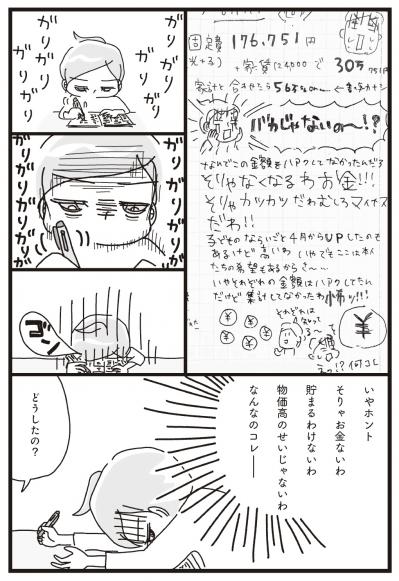 ガリガリ
ガリガリ
ガリガリ
ガリガリ
ガリガリガリガリ
ガリガリガリガリ
ゴン
固定費 176,751円
光+る) +家賃124000で 30万751円
家計と合わせたら56万
バカじゃないのー!?
なんでこの金額をハアクしてなかったんだろ
そりゃなくなるわお金!!!
そりゃカツカツだわむしろマイナス
だわ!!
子どものならいごと4月からUPしたのも
あるけど高いわ いやでもここは本人
たちの希望もあるからさー…
いやそれぞれの金額はハアクしてたん
だけど集計してなかったわ怖ッ!!
それぞれは
¥
¥
¥
¥
¥
¥
何コレ
いやホント
そりゃお金ないわ
貯まるわけないわ
物価高のせいじゃないわ
なんなのコレ──
どうしたの?